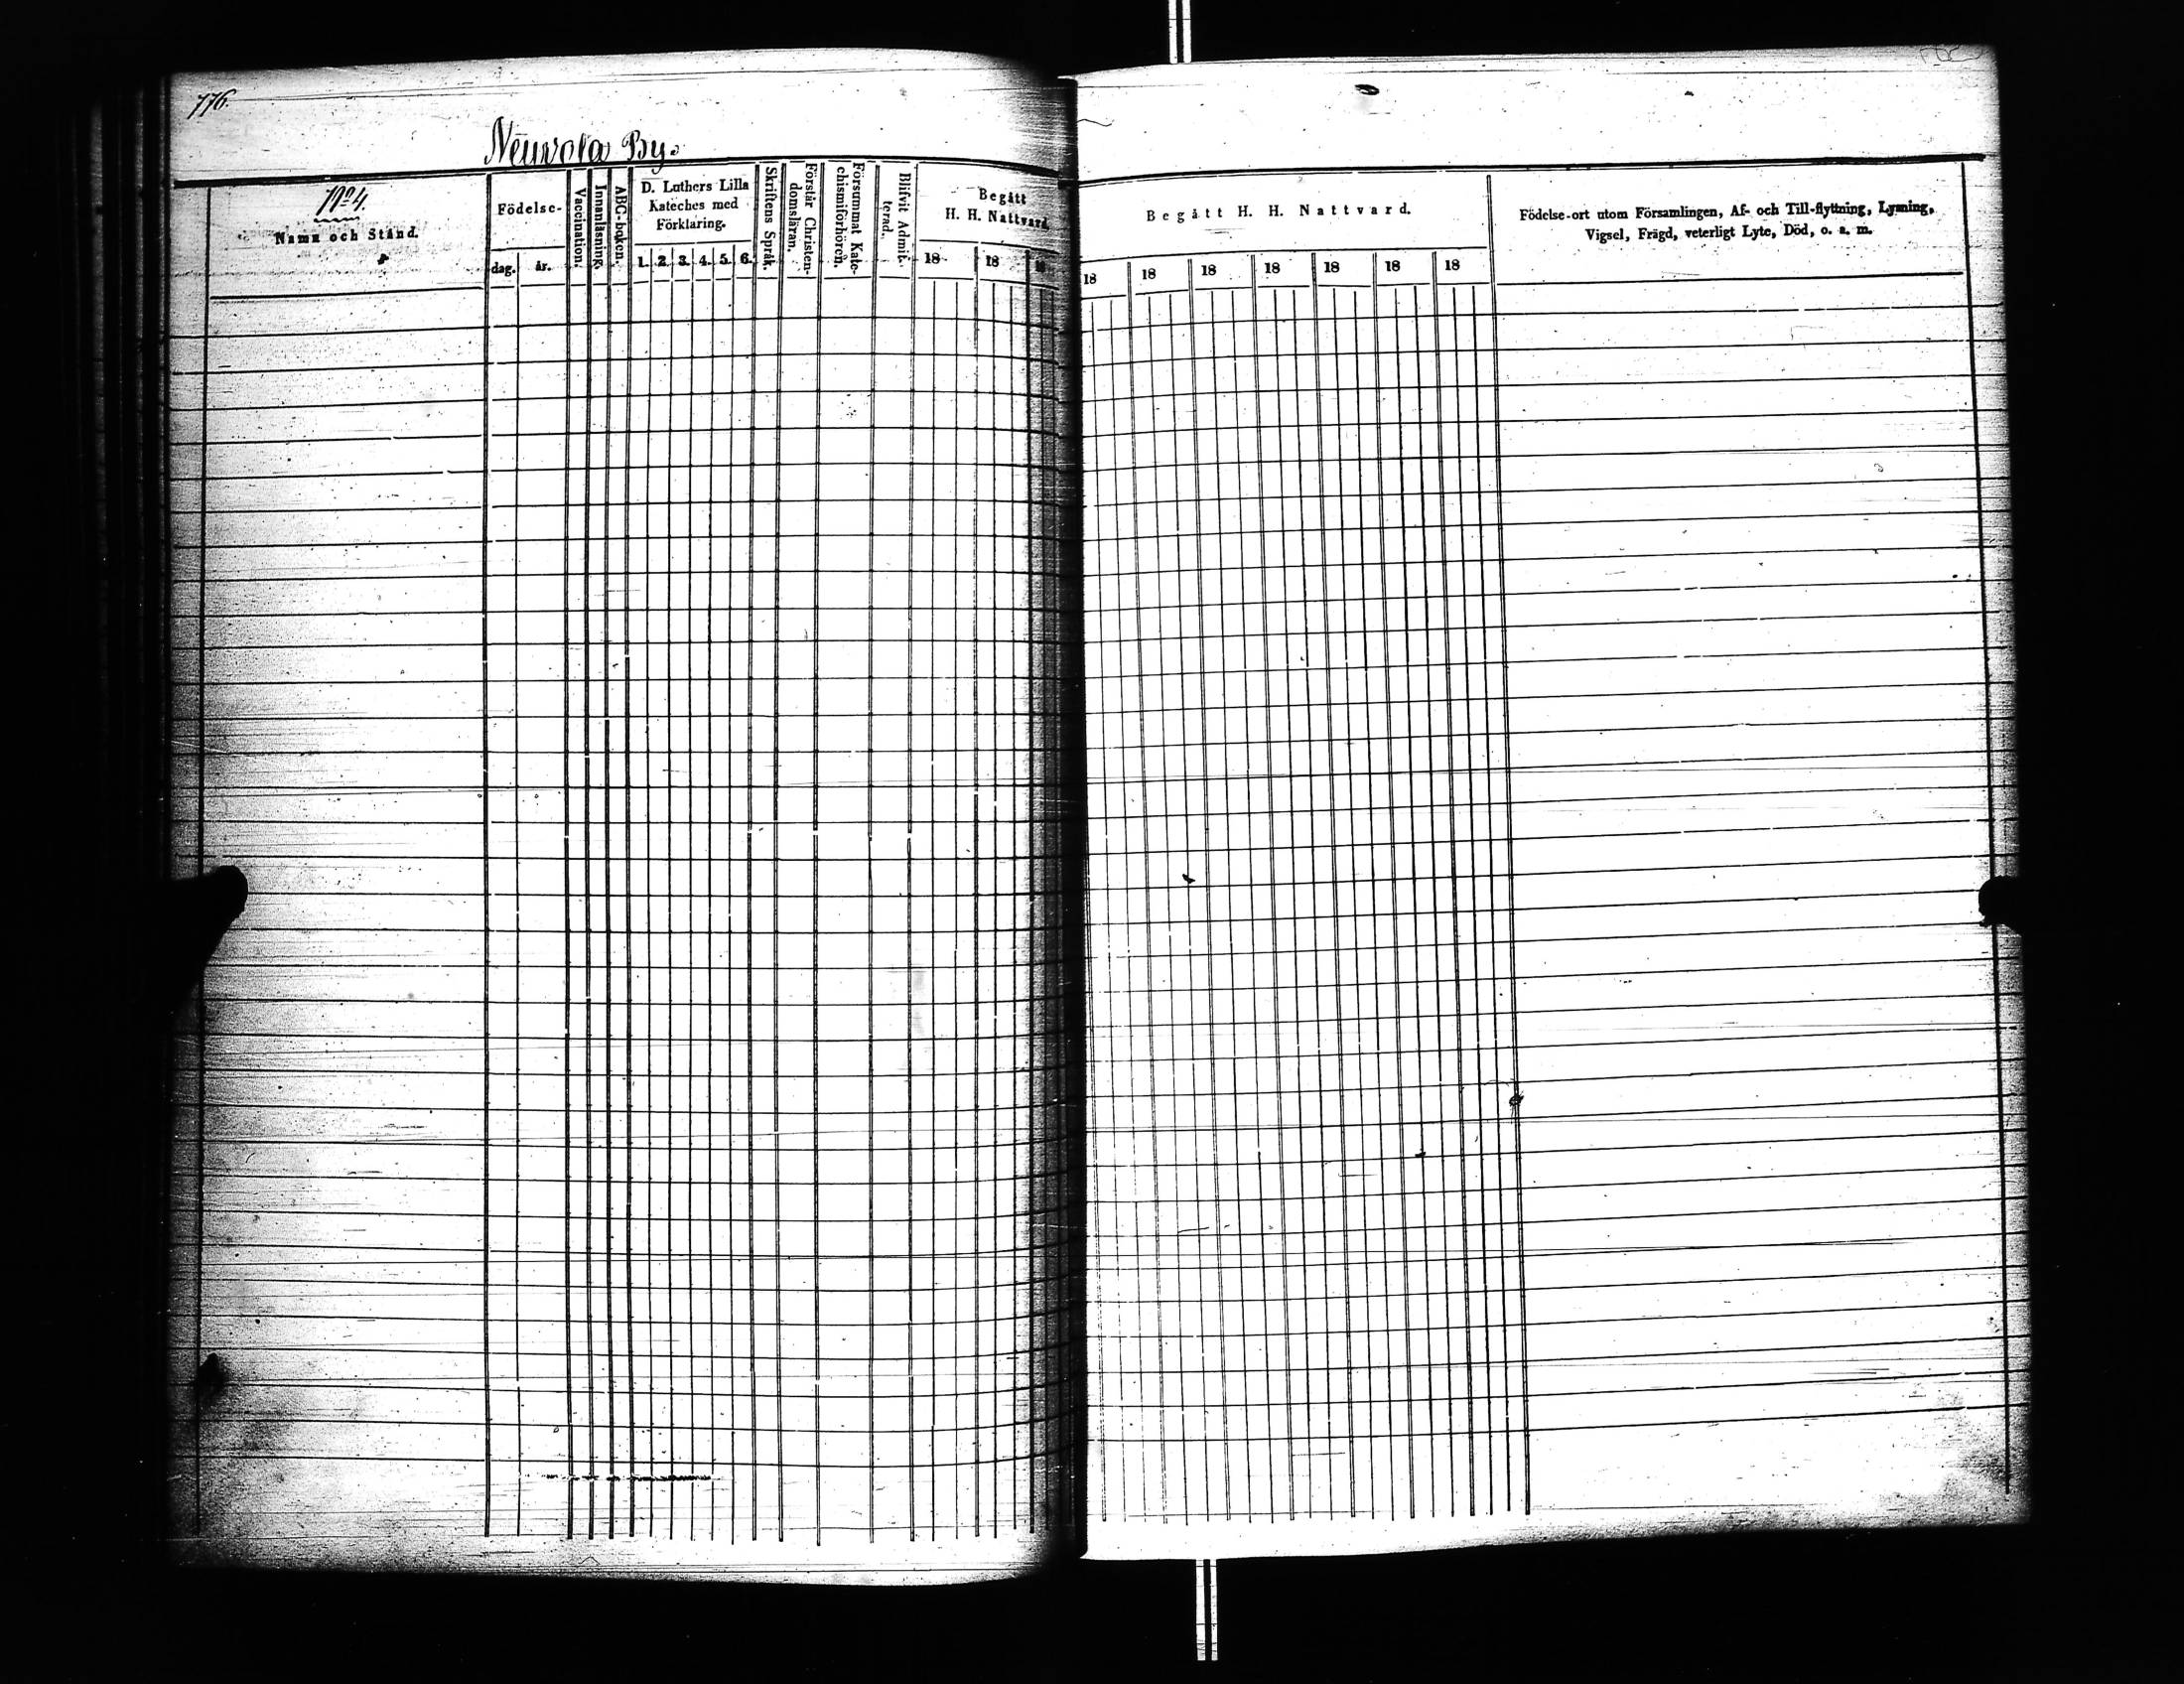 776.
Neuvola By.
No 4.
Namn och Stånd.
Födelse-
dag. år.
Vaccination.
Innanläsning.
ABC-boken.
D. Luthers Lilla
Kateches med
Förklaring.
1. 2. 3. 4. 5. 6.
Skriftens Språk.
Förstår Christen-
domsläran.
Försummat Kate-
chismiförhören.
Blifvit Admit-
terad.
Begått
H. H. Nattvard.
18 18 18
Begått H. H. Nattvard.
18 18 18 18 18 18 18
Födelse-ort utom Församlingen, Af- och Till-flyttning, Lysning,
Vigsel, Frägd, veterligt Lyte, Död, o. s. m.